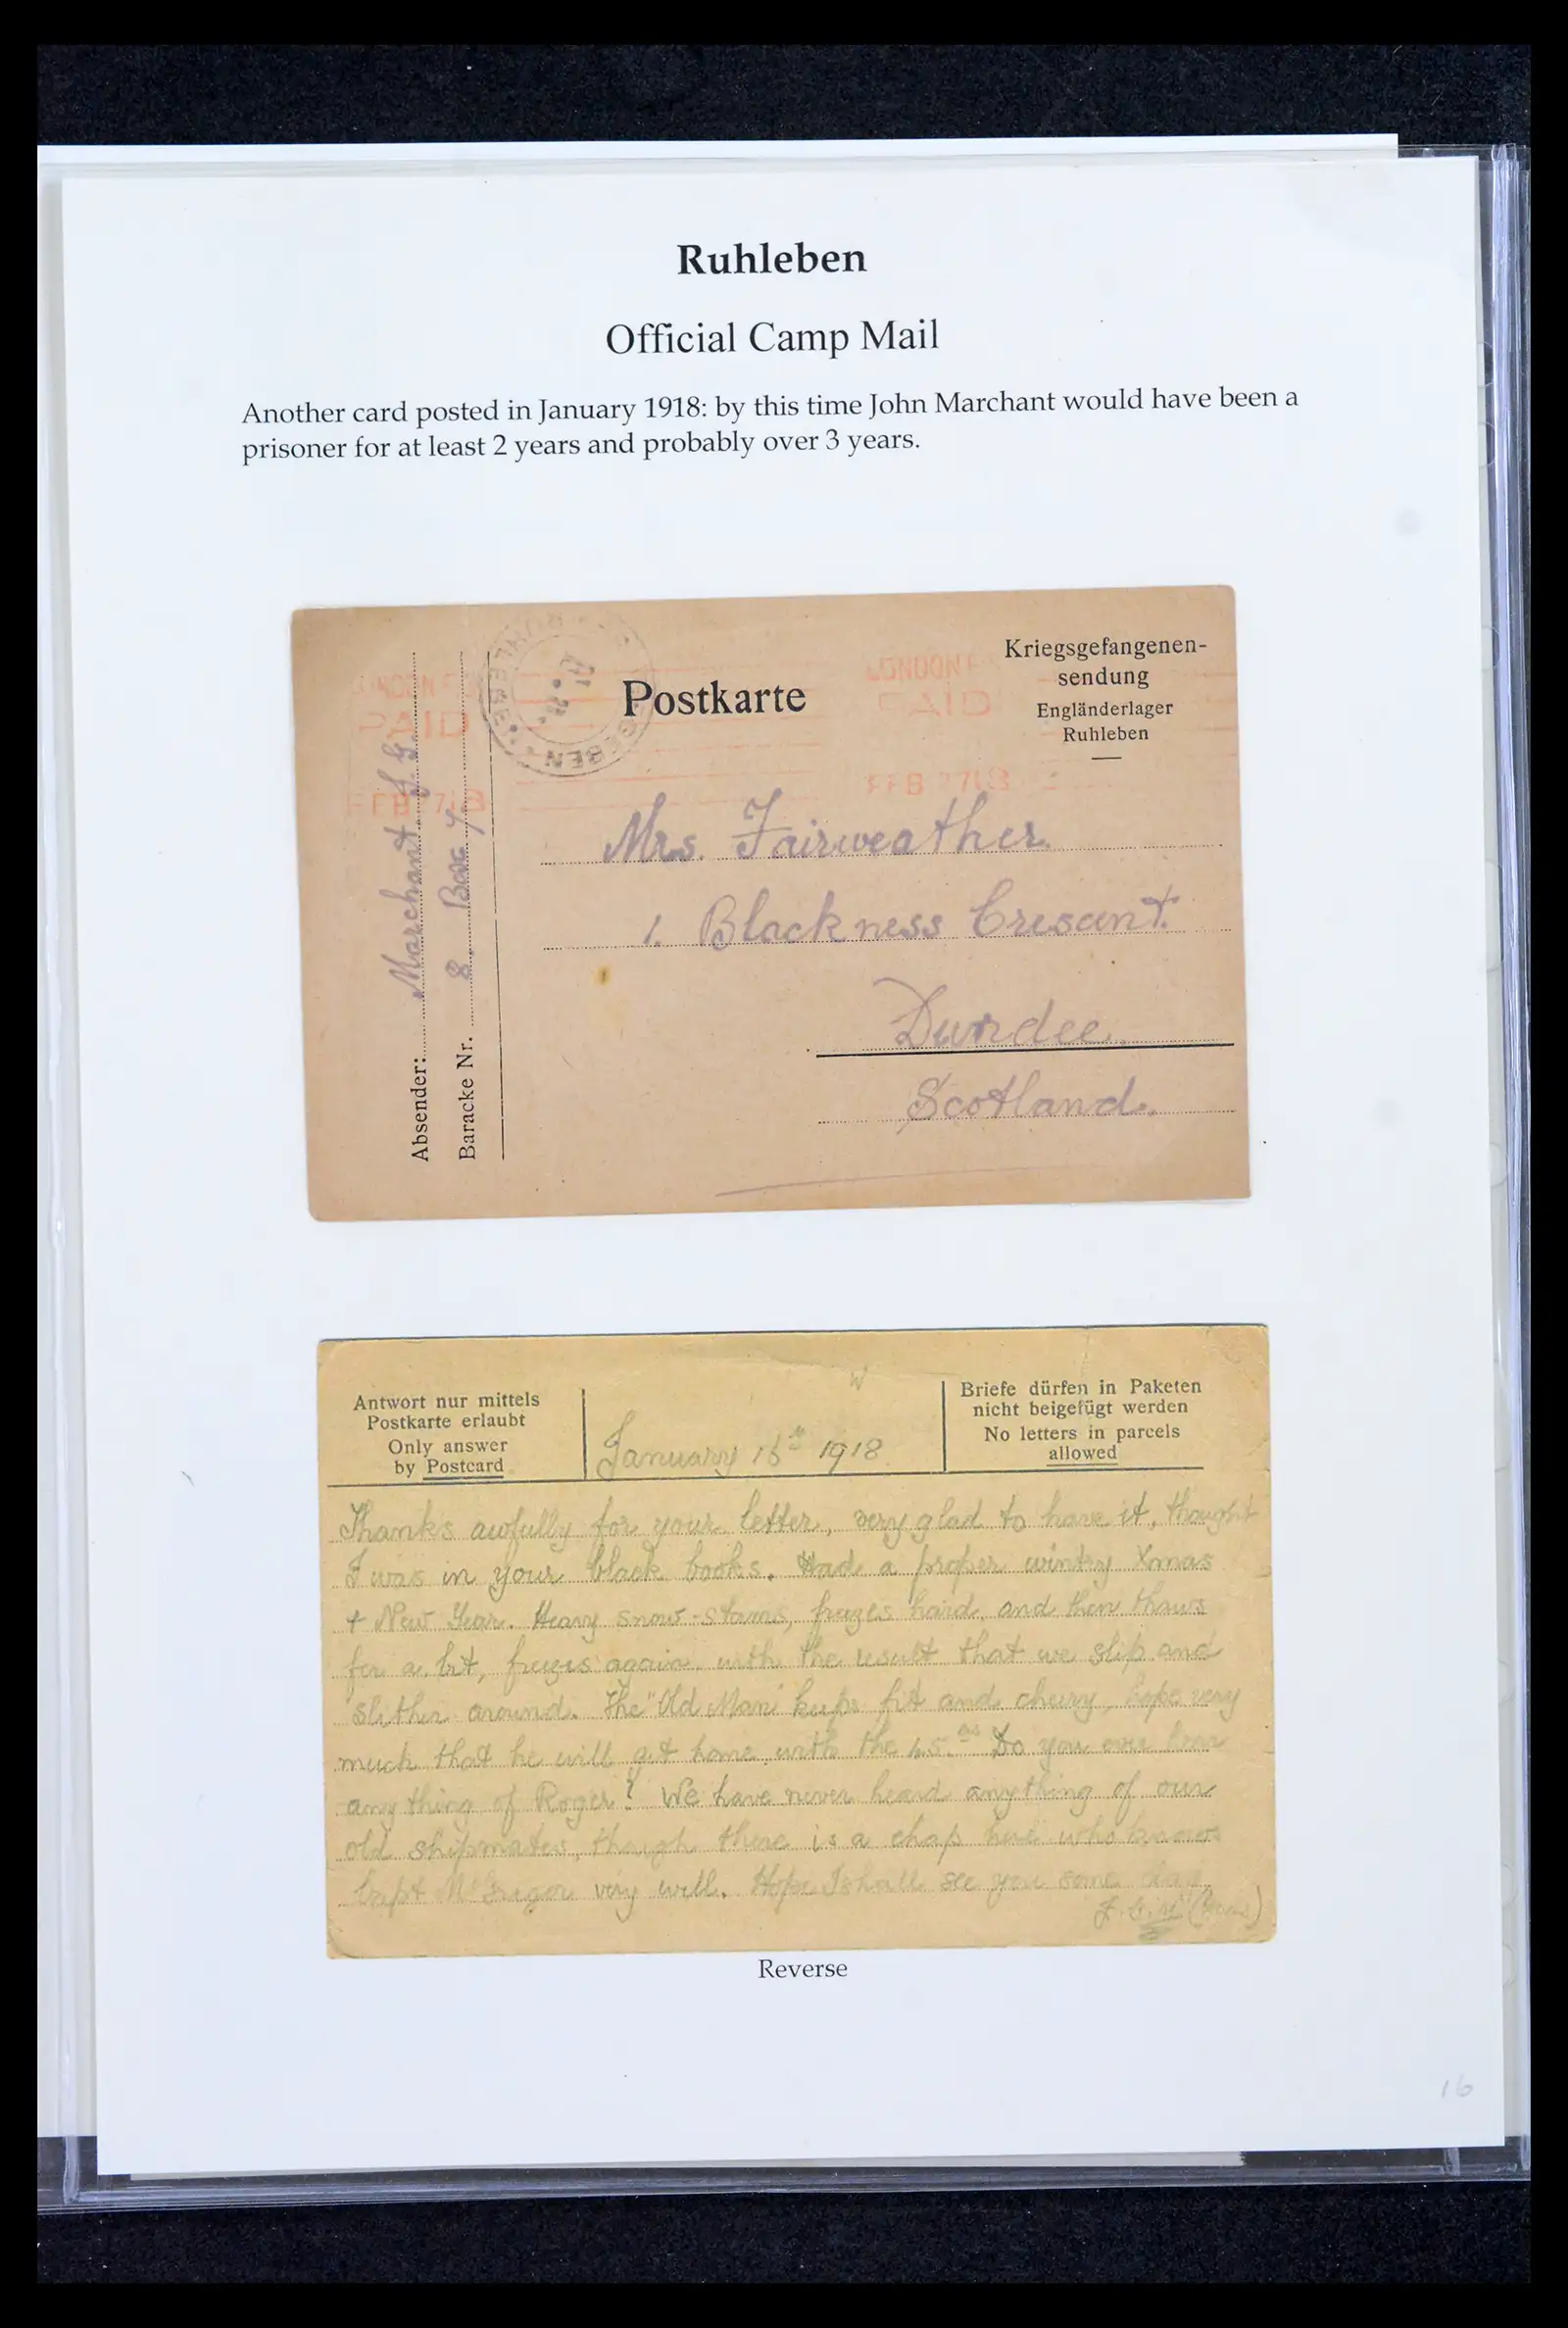 Ruhleben
Official Camp Mail
Another card posted in January 1918: by this time John Marchant would have been a
prisoner for at least 2 years and probably over 3 years.
Postkarte
Kriegsgefangenen-
sendung
Engländerlager
Ruhleben
LONDON
PAID
FEB 27 18
LONDON
PAID
FEB 27 18
Absender: Marchant J. G.
Baracke Nr. 8. Box 7.
Mrs. Fairweather.
1. Blackness Cresant.
Dundee.
Scotland.
Antwort nur mittels
Postkarte erlaubt
Only answer
by Postcard
January 16th 1918
Briefe dürfen in Paketen
nicht beigefügt werden
No letters in parcels
allowed
Thanks awfully for your letter, very glad to have it, thought
I was in your black books. Had a proper wintry Xmas
+ New Year. Heavy snow-storms, freezes hard, and then thaws
for a bit, freezes again with the result that we slip and
slither around. The "Old Man" keeps fit and cheery, hope very
much that he will get home with the 45. Do you ever hear
any thing of Roger? We have never heard anything of our
old shipmates, though there is a chap here who knows
Capt McGregor very well. Hope I shall see you some day.
Reverse
16